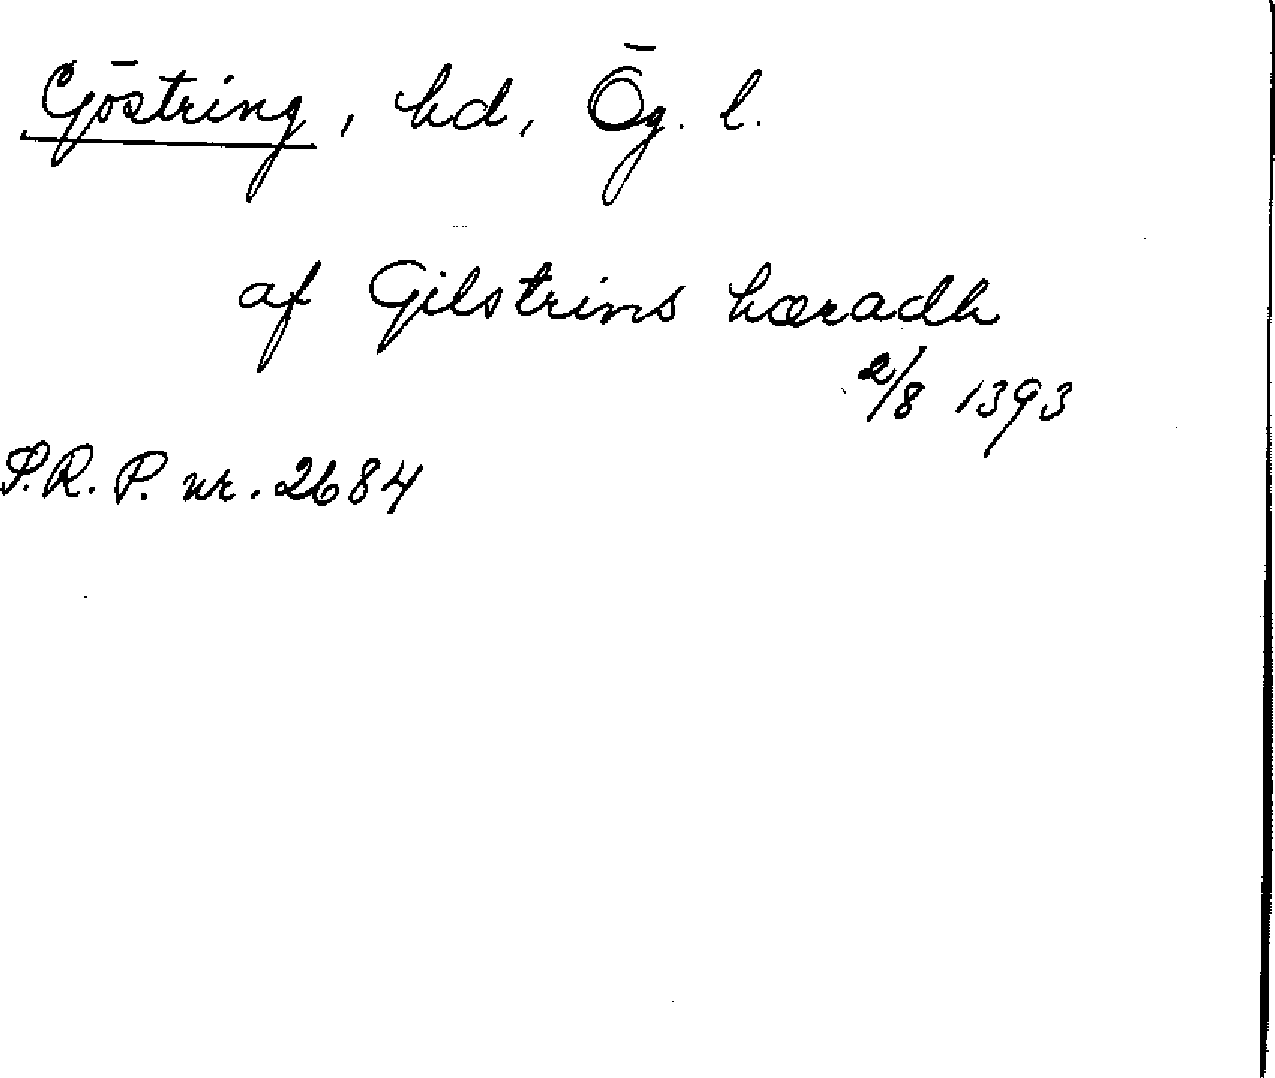 Göstring, hd, Ög. l.
af Gilstrins hæradh
2/8 1393
S.R.P. nr. 2684